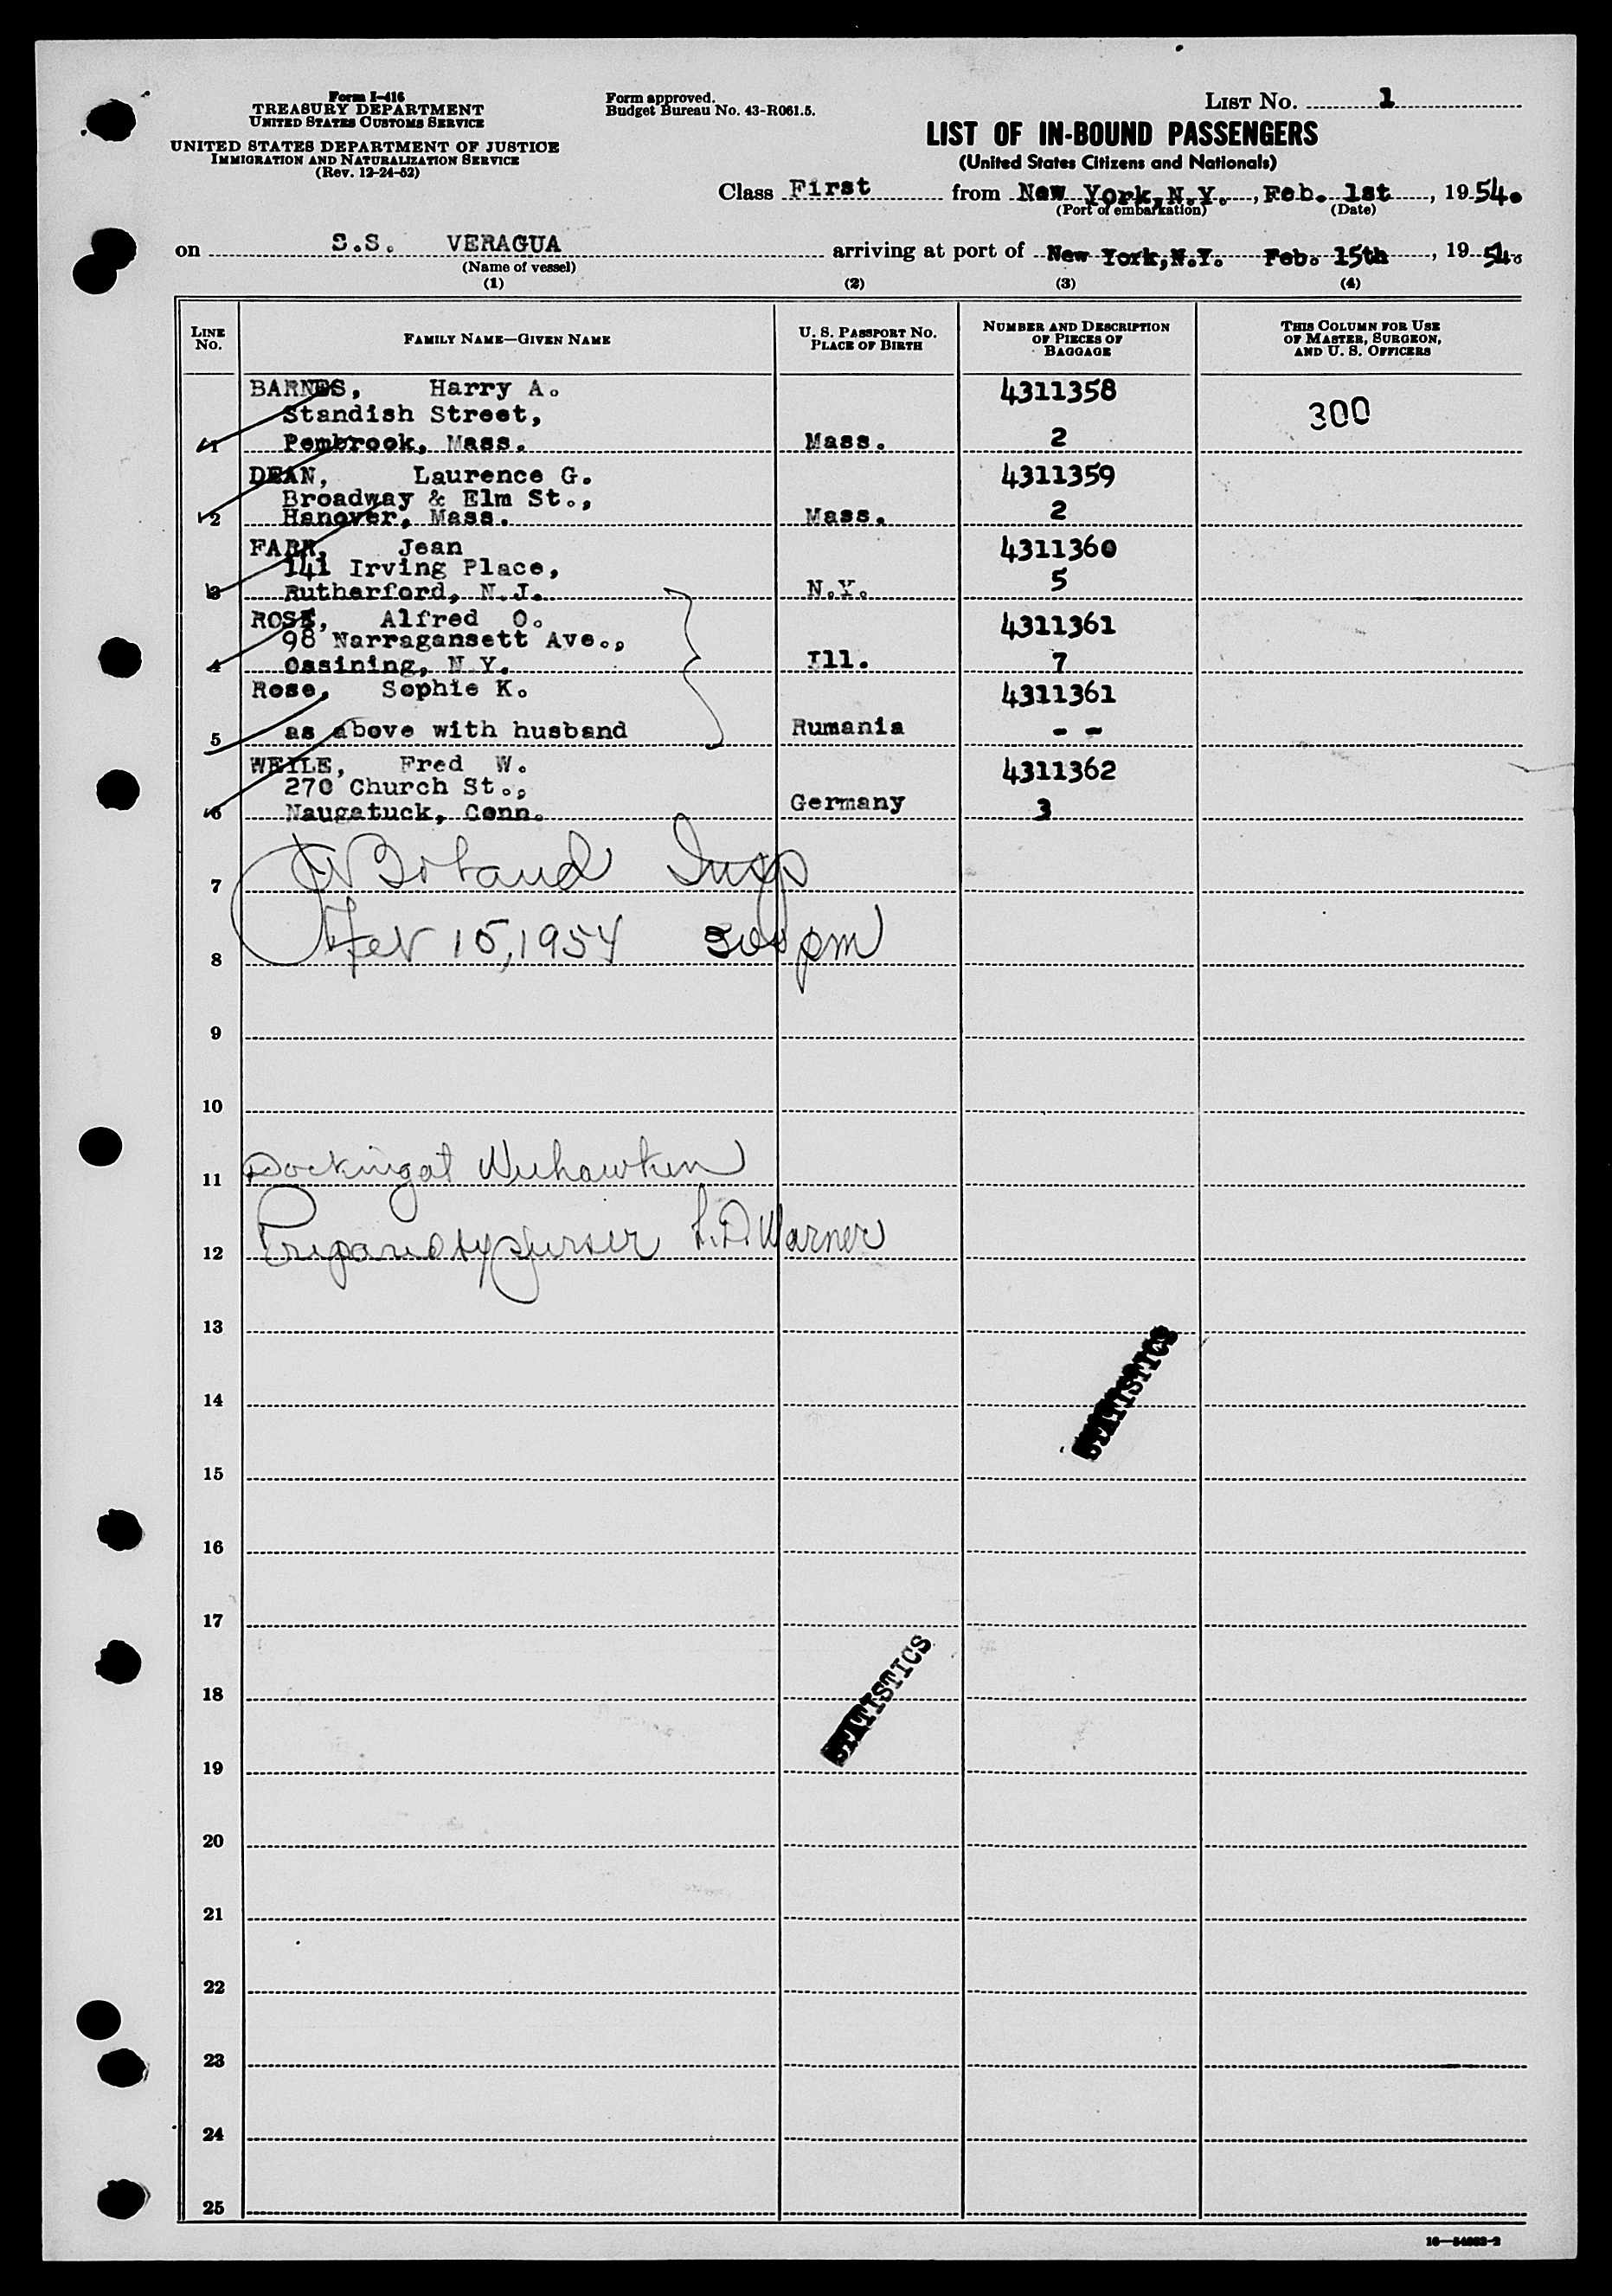 Form I-416
TREASURY DEPARTMENT
UNITED STATES CUSTOMS SERVICE
UNITED STATES DEPARTMENT OF JUSTICE
IMMIGRATION AND NATURALIZATION SERVICE
(Rev. 12-24-52)
Form approved.
Budget Bureau No. 43-R061.5.
LIST NO. 1
LIST OF IN-BOUND PASSENGERS
(United States Citizens and Nationals)
Class First from New York, N.Y., Feb. 1st, 1954.
(Port of embarkation) (Date)
on S.S. VERAGUA arriving at port of New York, N.Y. Feb. 15th, 1954.
(Name of vessel)
(1) (2) (3) (4)
LINE NO. FAMILY NAME—GIVEN NAME U. S. PASSPORT NO. PLACE OF BIRTH NUMBER AND DESCRIPTION OF PIECES OF BAGGAGE THIS COLUMN FOR USE OF MASTER, SURGEON, AND U. S. OFFICERS
BARNES, Harry A. 4311358
Standish Street, 300
1 Pembrook, Mass. Mass. 2
DEAN, Laurence G. 4311359
Broadway & Elm St.,
2 Hanover, Mass. Mass. 2
FARR, Jean 4311360
141 Irving Place,
3 Rutherford, N.J. N.Y. 5
ROSE, Alfred O. 4311361
98 Narragansett Ave.,
4 Ossining, N.Y. Ill. 7
Rose, Sophie K. 4311361
5 as above with husband Rumania - -
WEILE, Fred W. 4311362
270 Church St.,
6 Naugatuck, Conn. Germany 3
7 Boland Insp
8 Feb 15, 1954 300 pm
9
10
11 Docking at Weehawken
12 Prepared by purser L.D. Warner
13
STATISTICS
14
15
16
17
STATISTICS
18
19
20
21
22
23
24
25